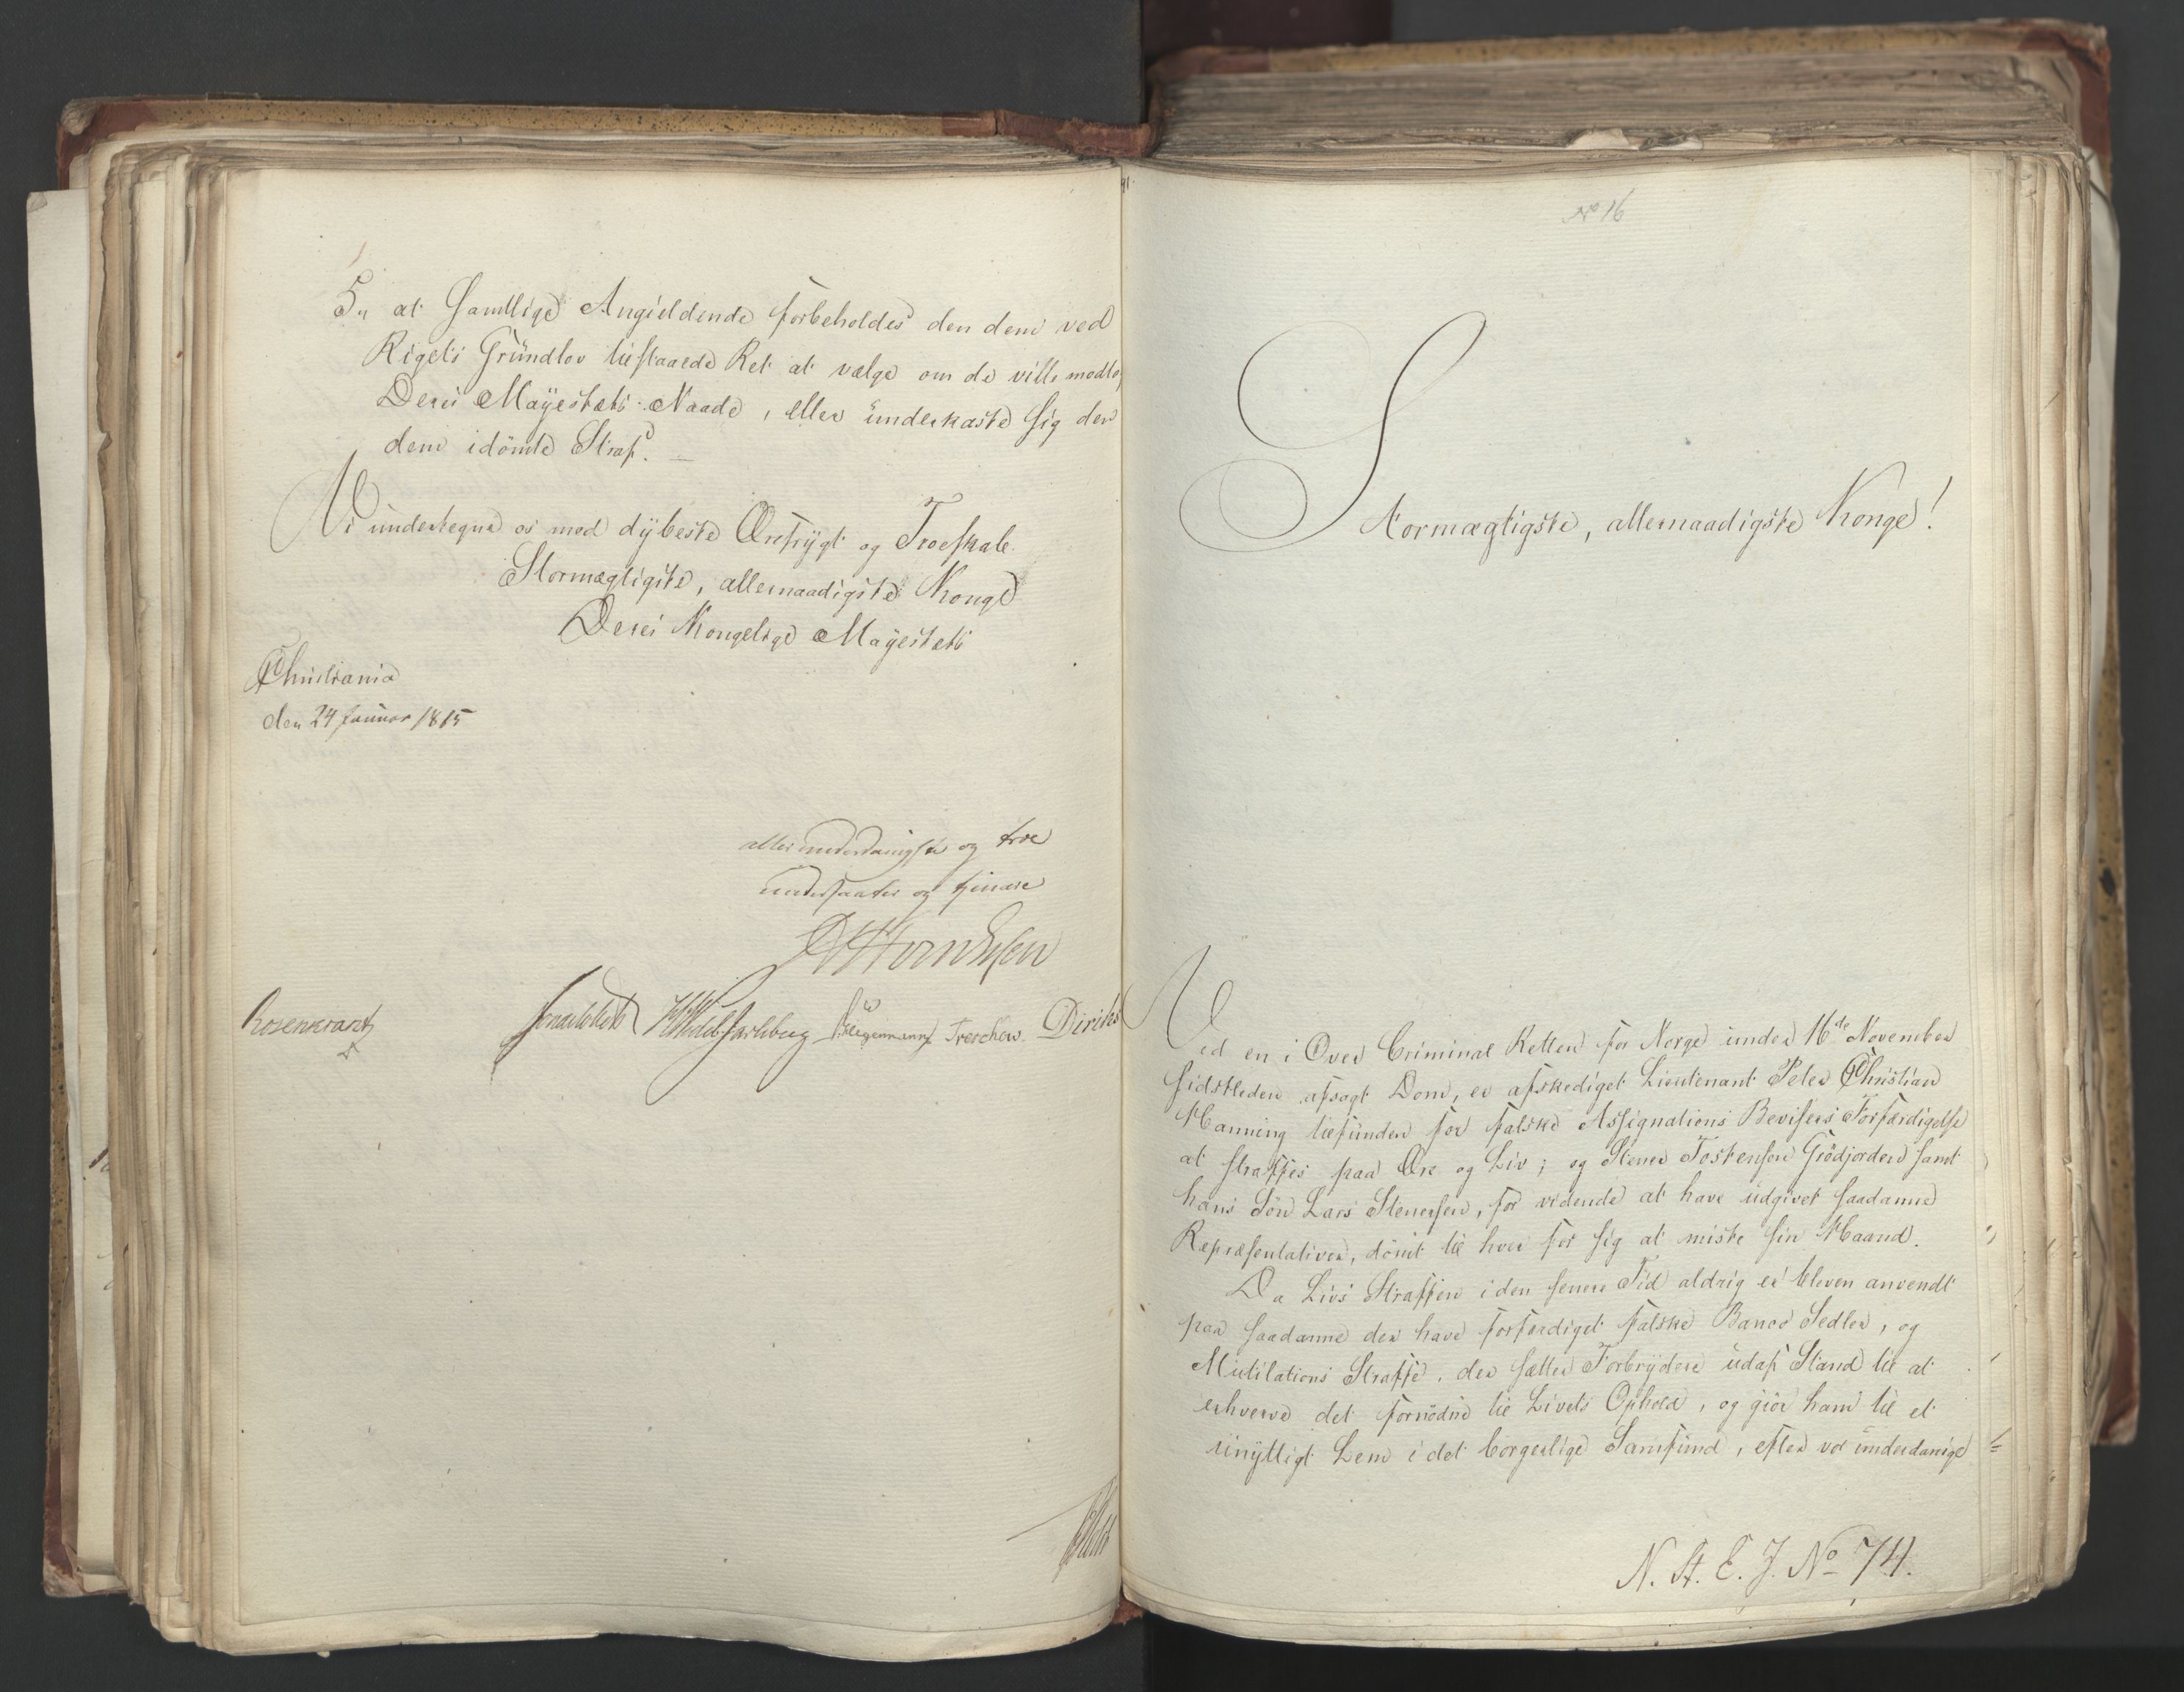 5, at samtlige Angieldende forbeholdes den dem ved
Rigets Grundlov tilstaaede Ret at vælge om de ville modta
Deres Mayestæts Naade, eller underkaste sig den
dem idömte Straf. —
Vi undertegne os med dybeste Ærefrygt og Troeskab
Stormægtigste, allernaadigste Konge
Deres Kongelige Mayestæts
Christiania
den 24 Januar 1815
allerunderdanigste og troe
undersaatter og tjenere
Rosenkrantz
Treschow Diriks
No 16
Stormægtigste, allernaadigste Konge!
Ved en i Over Criminal Retten for Norge under 16de November
sidstleden afsagt Dom, er afskediget Lieutenant Peter Christian
Manning tilfunden for falske Assignations Bevisers Forfærdigelse
at straffes paa Ære og Liv; og Stener Tostensen Grödjordet samt
hans Sön Lars Stenersen, for vidende at have udgivet saadanne
Repræsentativer, dömt til hver for sig at miste sin Haand.
Da Livs Straffen i den senere Tid aldrig er bleven anvendt
paa saadanne der have forfærdiget falske Banco Sedler, og
Mutilations Straffe, der sætter Forbrydere udaf Stand til at
erhverve det fornödne til Livets Ophold, og giör ham til et
unyttigt Lem i det borgerlige Samfund, efter vor underdanige
N. A. E. J. No 74.